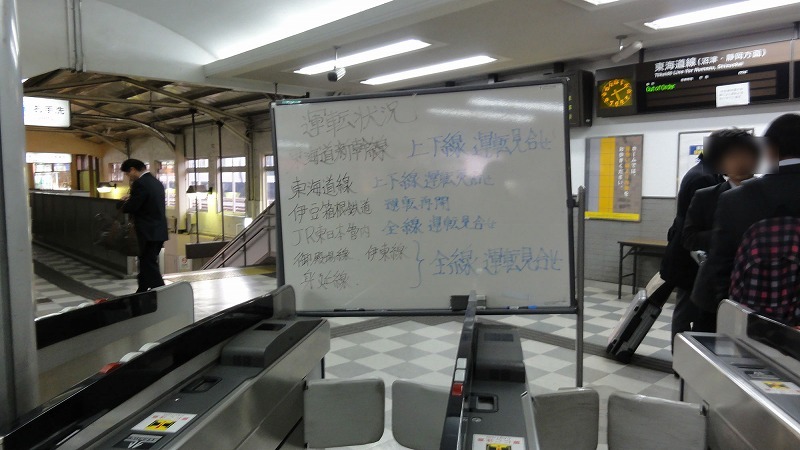 運転状況
東海道新幹線 上下線 運転見合せ
東海道線 上下線 運転見合せ
伊豆箱根鉄道 運転再開
JR東日本管内 全線 運転見合せ
御殿場線 伊東線
身延線
全線 運転見合せ
東海道線(沼津・静岡方面)
Tōkaidō Line for Numazu, Shizuoka
Out of Order